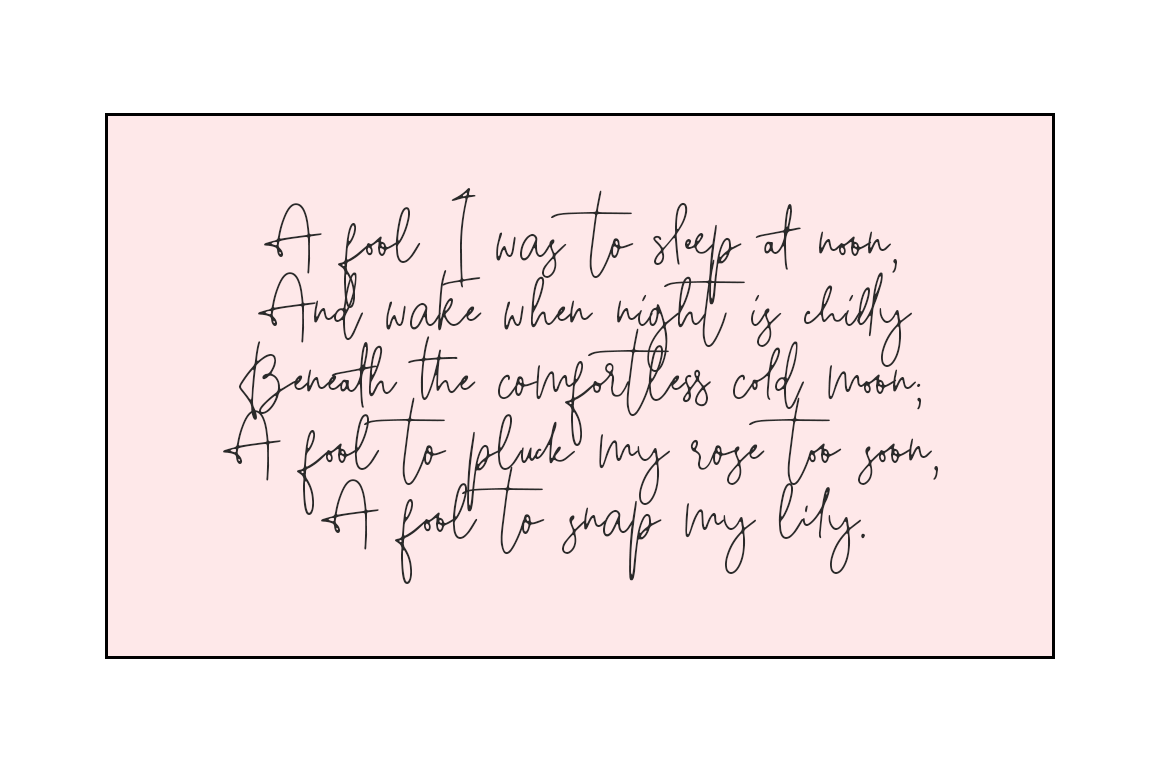 A fool I was to sleep at noon,
And wake when night is chilly
Beneath the comfortless cold moon;
A fool to pluck my rose too soon,
A fool to snap my lily.